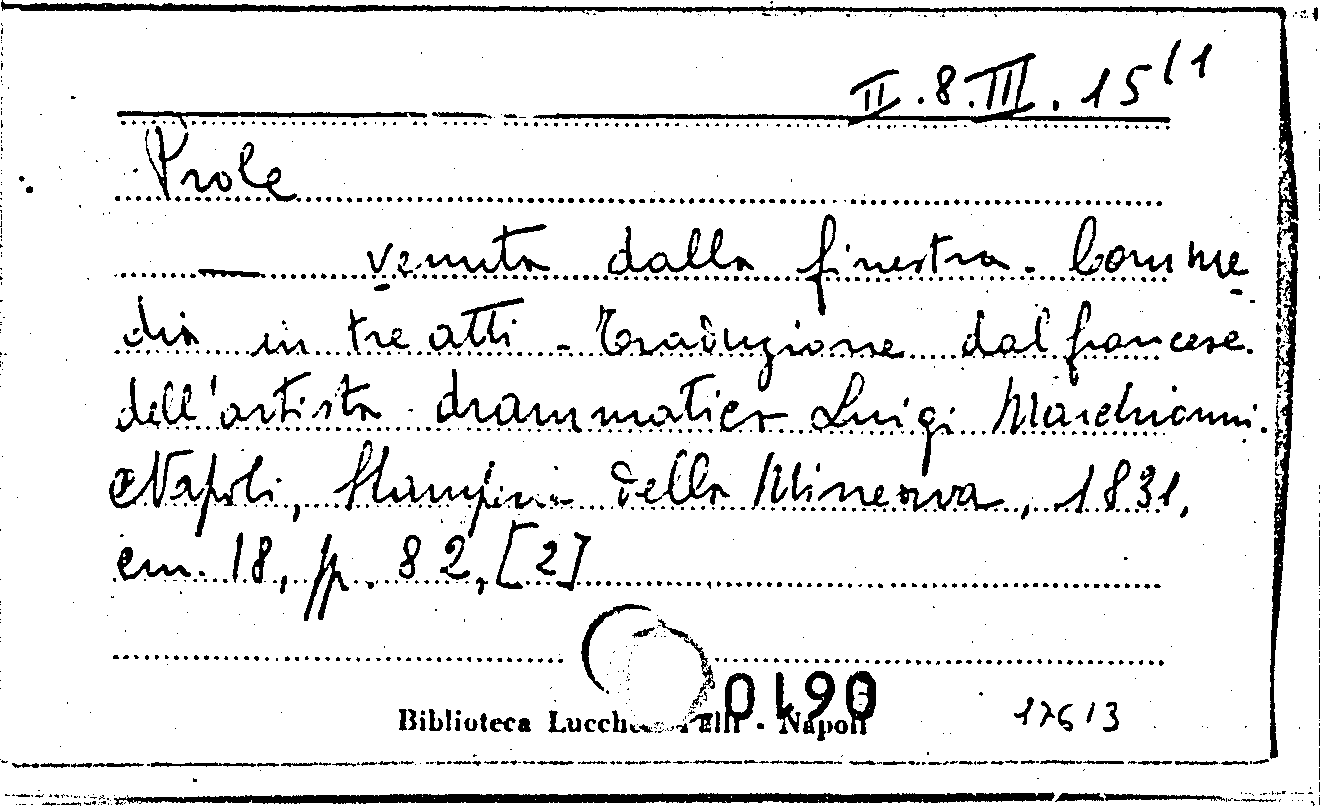 II.8.III.15/1
Prole
— venuta dalla finestra. Comme
dia in tre atti - Traduzione dal francese
dell'artista drammatico Luigi Marchionni.
Napoli, Stamperia della Minerva, 1831,
cm. 18, pp. 82, [2]
0190
Biblioteca Lucchesi Palli - Napoli
17613